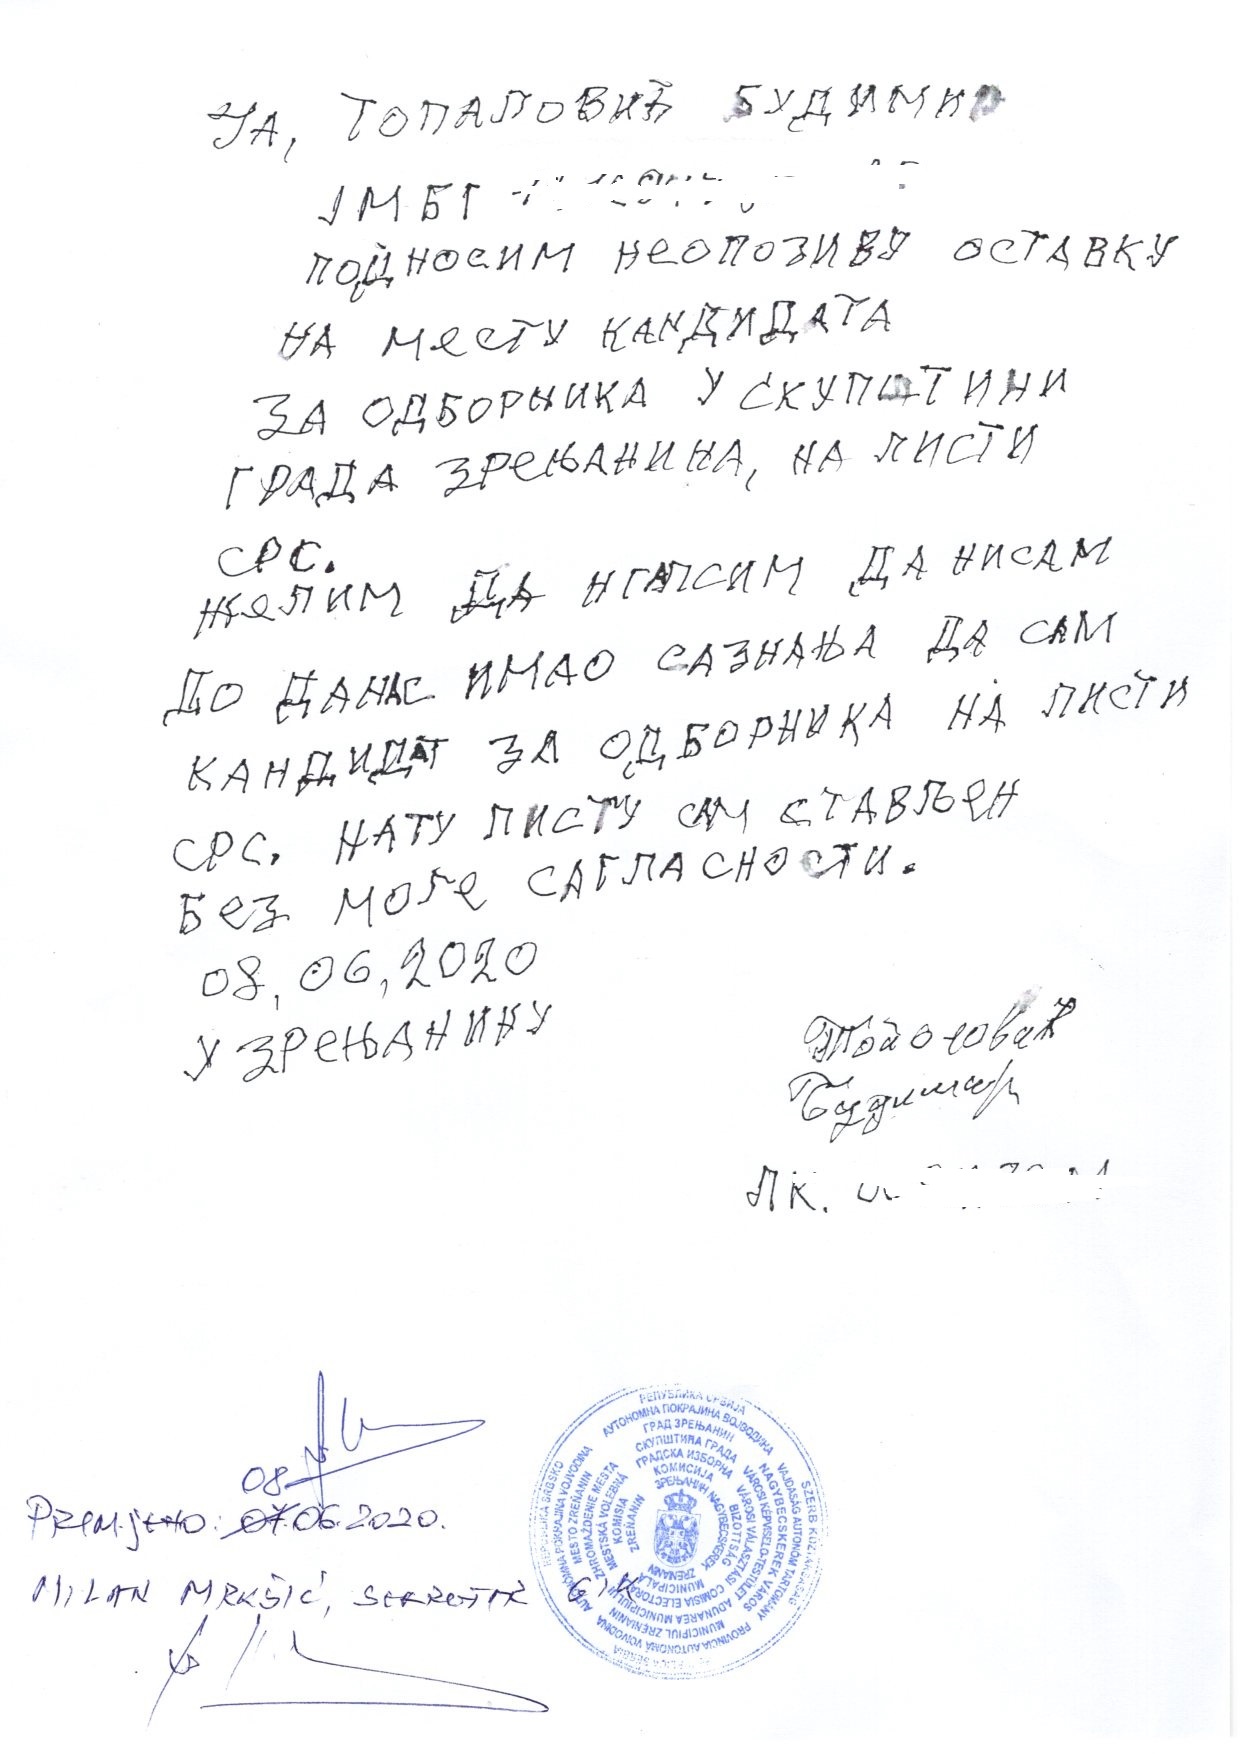 ЈА, ТОПАЛОВИЋ БУДИМИР
ЈМБГ
ПОДНОСИМ НЕОПОЗИВУ ОСТАВКУ
НА МЕСТУ КАНДИДАТА
ЗА ОДБОРНИКА У СКУПШТИНИ
ГРАДА ЗРЕЊАНИНА, НА ЛИСТИ
СРС.
ЖЕЛИМ ДА НГАЛСИМ ДА НИСАМ
ДО ДАНАС ИМАО САЗНАЊА ДА САМ
КАНДИДАТ ЗА ОДБОРНИКА НА ЛИСТИ
СРС. НА ТУ ЛИСТУ САМ СТАВЉЕН
БЕЗ МОЈЕ САГЛАСНОСТИ.
08,06,2020
У ЗРЕЊАНИНУ
Топаловић
Будимир
ЛК.
08
PRIMLJENO: 07.06.2020.
MILAN MRKŠIĆ, SEKRETAR GIK
РЕПУБЛИКА СРБИЈА
АУТОНОМНА ПОКРАЈИНА ВОЈВОДИНА
ГРАД ЗРЕЊАНИН
СКУПШТИНА ГРАДА
ГРАДСКА ИЗБОРНА
КОМИСИЈА
ЗРЕЊАНИН
SZERB KÖZTÁRSASÁG
VAJDASÁG AUTONÓM TARTOMÁNY
NAGYBECSKEREK VÁROS
VÁROSI KÉPVISELŐ-TESTÜLET
VÁROSI VÁLASZTÁSI
BIZOTTSÁG
NAGYBECSKEREK
REPUBLICA SERBIA
PROVINCIA AUTONOMĂ VOIVODINA
MUNICIPIUL ZRENIANIN
ADUNAREA MUNICIPIULUI
COMISIA ELECTORALĂ
MUNICIPALĂ
ZRENIANIN
REPUBLIKA SRBSKO
AUTONÓMNA POKRAJINA VOJVODINA
MESTO ZREŇANIN
ZHROMAŽDENIE MESTA
MESTSKÁ VOLEBNÁ
KOMISIA
ZREŇANIN